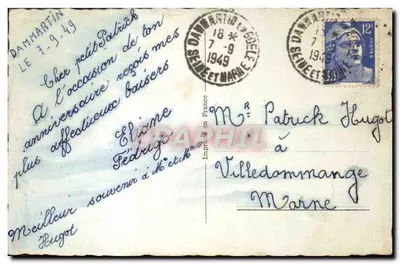 DAMMARTIN
LE 7-9-49
Cher petit Patrick
A l'occasion de ton
anniversaire reçois mes
plus affectueux baisers
Eliane
Fédrigo
Meilleur souvenir à Mr et Mme
Hugot
DAMMARTIN EN GOELE
18 *
7-9
1949
SEINE ET MARNE
12F
Imprimé en France
Mr Patrick Hugot
à
Villedommange
Marne